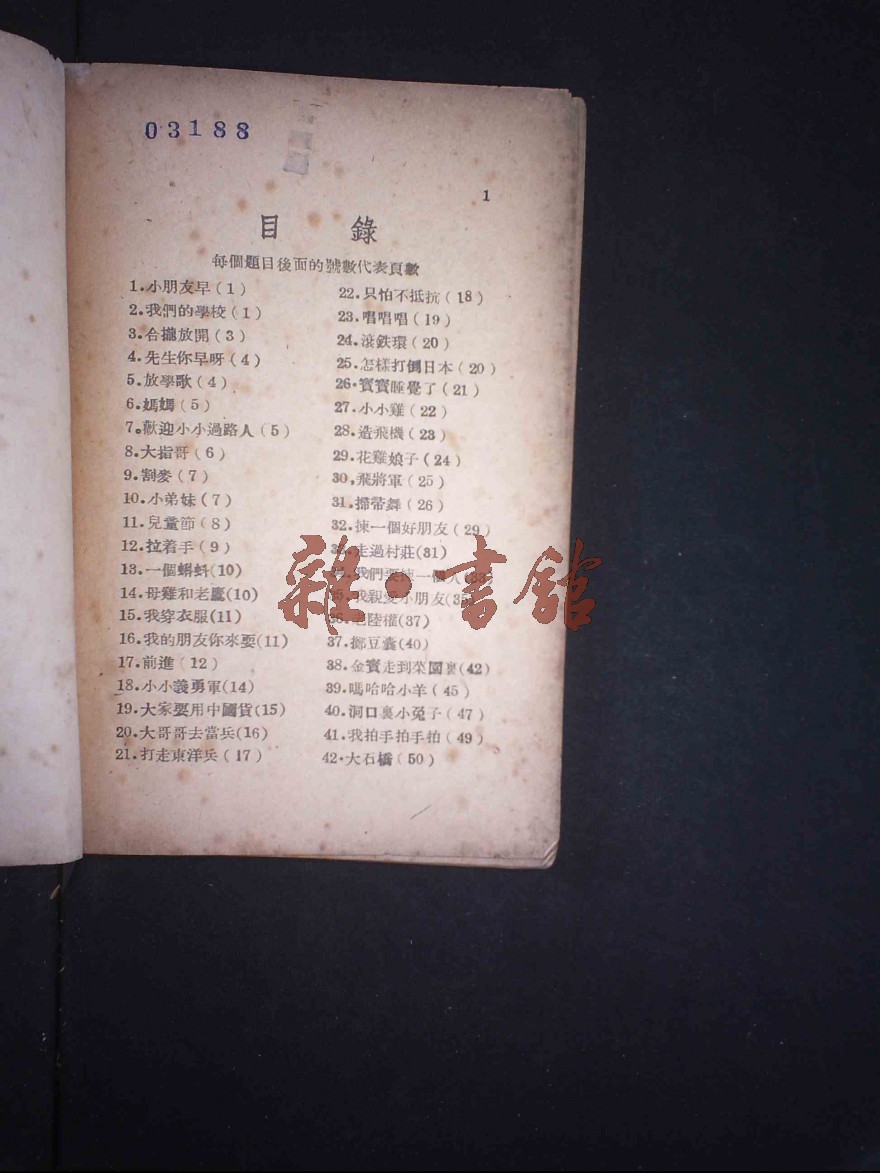 03188
1
目錄
每個題目後面的號數代表頁數
1.小朋友早(1)
2.我們的學校(1)
3.合攏放開(3)
4.先生你早呀(4)
5.放學歌(4)
6.媽媽(5)
7。歡迎小小過路人(5)
8.大指哥(6)
9.割麥(7)
10.小弟妹(7)
11.兒童節(8)
12.拉着手(9)
13.一個蝌蚪(10)
14.母雞和老鷹(10)
15.我穿衣服(11)
16.我的朋友你來耍(11)
17.前進(12)
18.小小義勇軍(14)
19.大家要用中國貨(15)
20.大哥哥去當兵(16)
21.打走東洋兵(17)
22.只怕不抵抗(18)
23.唱唱唱(19)
24.滾鉄環(20)
25.怎樣打倒日本(20)
26·寶寶睡覺了(21)
27.小小雞(22)
28.造飛機(23)
29.花雞娘子(24)
30,飛將軍(25)
31.掃帚舞(26)
32.揀一個好朋友(29)
33.走過村莊(31)
我們要揀一個人(33)
我親愛小朋友(35)
陸權(37)
37.擲豆囊(40)
38.金寶走到菜園裏(42)
39.嗎哈哈小羊(45)
40.洞口裏小兔子(47)
41.我拍手拍手拍(49)
42·大石橋(50)
雜·書館